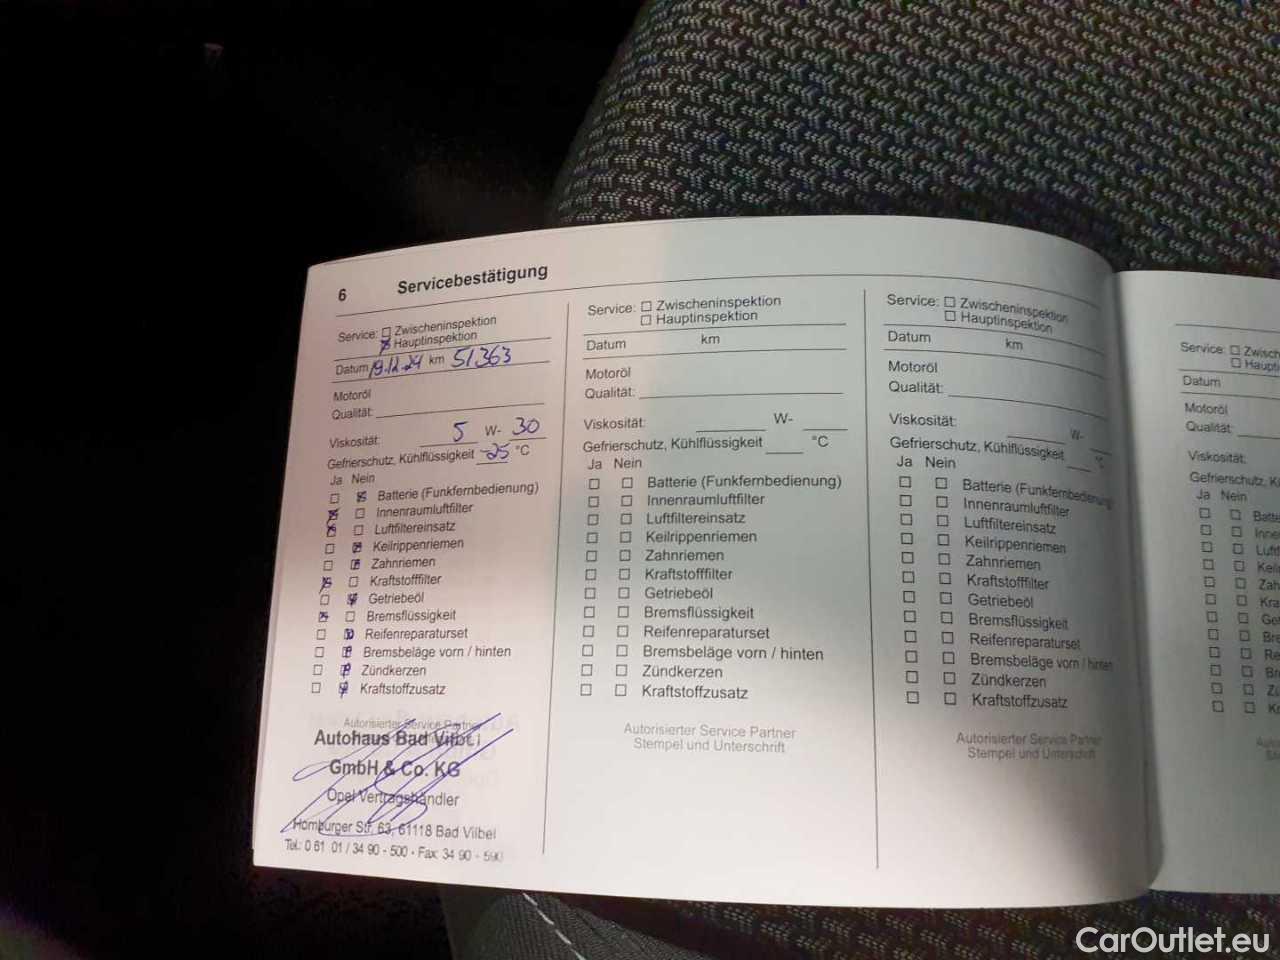 6 Servicebestätigung
Service: Zwischeninspektion
Hauptinspektion
Datum 19.12.24 km 51363
Motoröl
Qualität:
Viskosität: 5 W- 30
Gefrierschutz, Kühlflüssigkeit -25 °C
Ja Nein
Batterie (Funkfernbedienung)
Innenraumluftfilter
Luftfiltereinsatz
Keilrippenriemen
Zahnriemen
Kraftstofffilter
Getriebeöl
Bremsflüssigkeit
Reifenreparaturset
Bremsbeläge vorn / hinten
Zündkerzen
Kraftstoffzusatz
Autorisierter Service Partner
Autohaus Bad Vilbel
GmbH & Co. KG
Opel Vertragshändler
Homburger Str. 63, 61118 Bad Vilbel
Tel.: 0 61 01 / 34 90 - 500 - Fax: 34 90 - 590
Service: Zwischeninspektion
Hauptinspektion
Datum km
Motoröl
Qualität:
Viskosität: W-
Gefrierschutz, Kühlflüssigkeit °C
Ja Nein
Batterie (Funkfernbedienung)
Innenraumluftfilter
Luftfiltereinsatz
Keilrippenriemen
Zahnriemen
Kraftstofffilter
Getriebeöl
Bremsflüssigkeit
Reifenreparaturset
Bremsbeläge vorn / hinten
Zündkerzen
Kraftstoffzusatz
Autorisierter Service Partner
Stempel und Unterschrift
Service: Zwischeninspektion
Hauptinspektion
Datum km
Motoröl
Qualität:
Viskosität: W-
Gefrierschutz, Kühlflüssigkeit °C
Ja Nein
Batterie (Funkfernbedienung)
Innenraumluftfilter
Luftfiltereinsatz
Keilrippenriemen
Zahnriemen
Kraftstofffilter
Getriebeöl
Bremsflüssigkeit
Reifenreparaturset
Bremsbeläge vorn / hinten
Zündkerzen
Kraftstoffzusatz
Autorisierter Service Partner
Stempel und Unterschrift
Service: Zwisch
Haupti
Datum
Motoröl
Qualität:
Viskosität:
Gefrierschutz, K
Ja Nein
Batte
Inne
Luft
Keil
Zah
Kra
Get
Bre
Re
Br
Zü
K
CarOutlet.eu